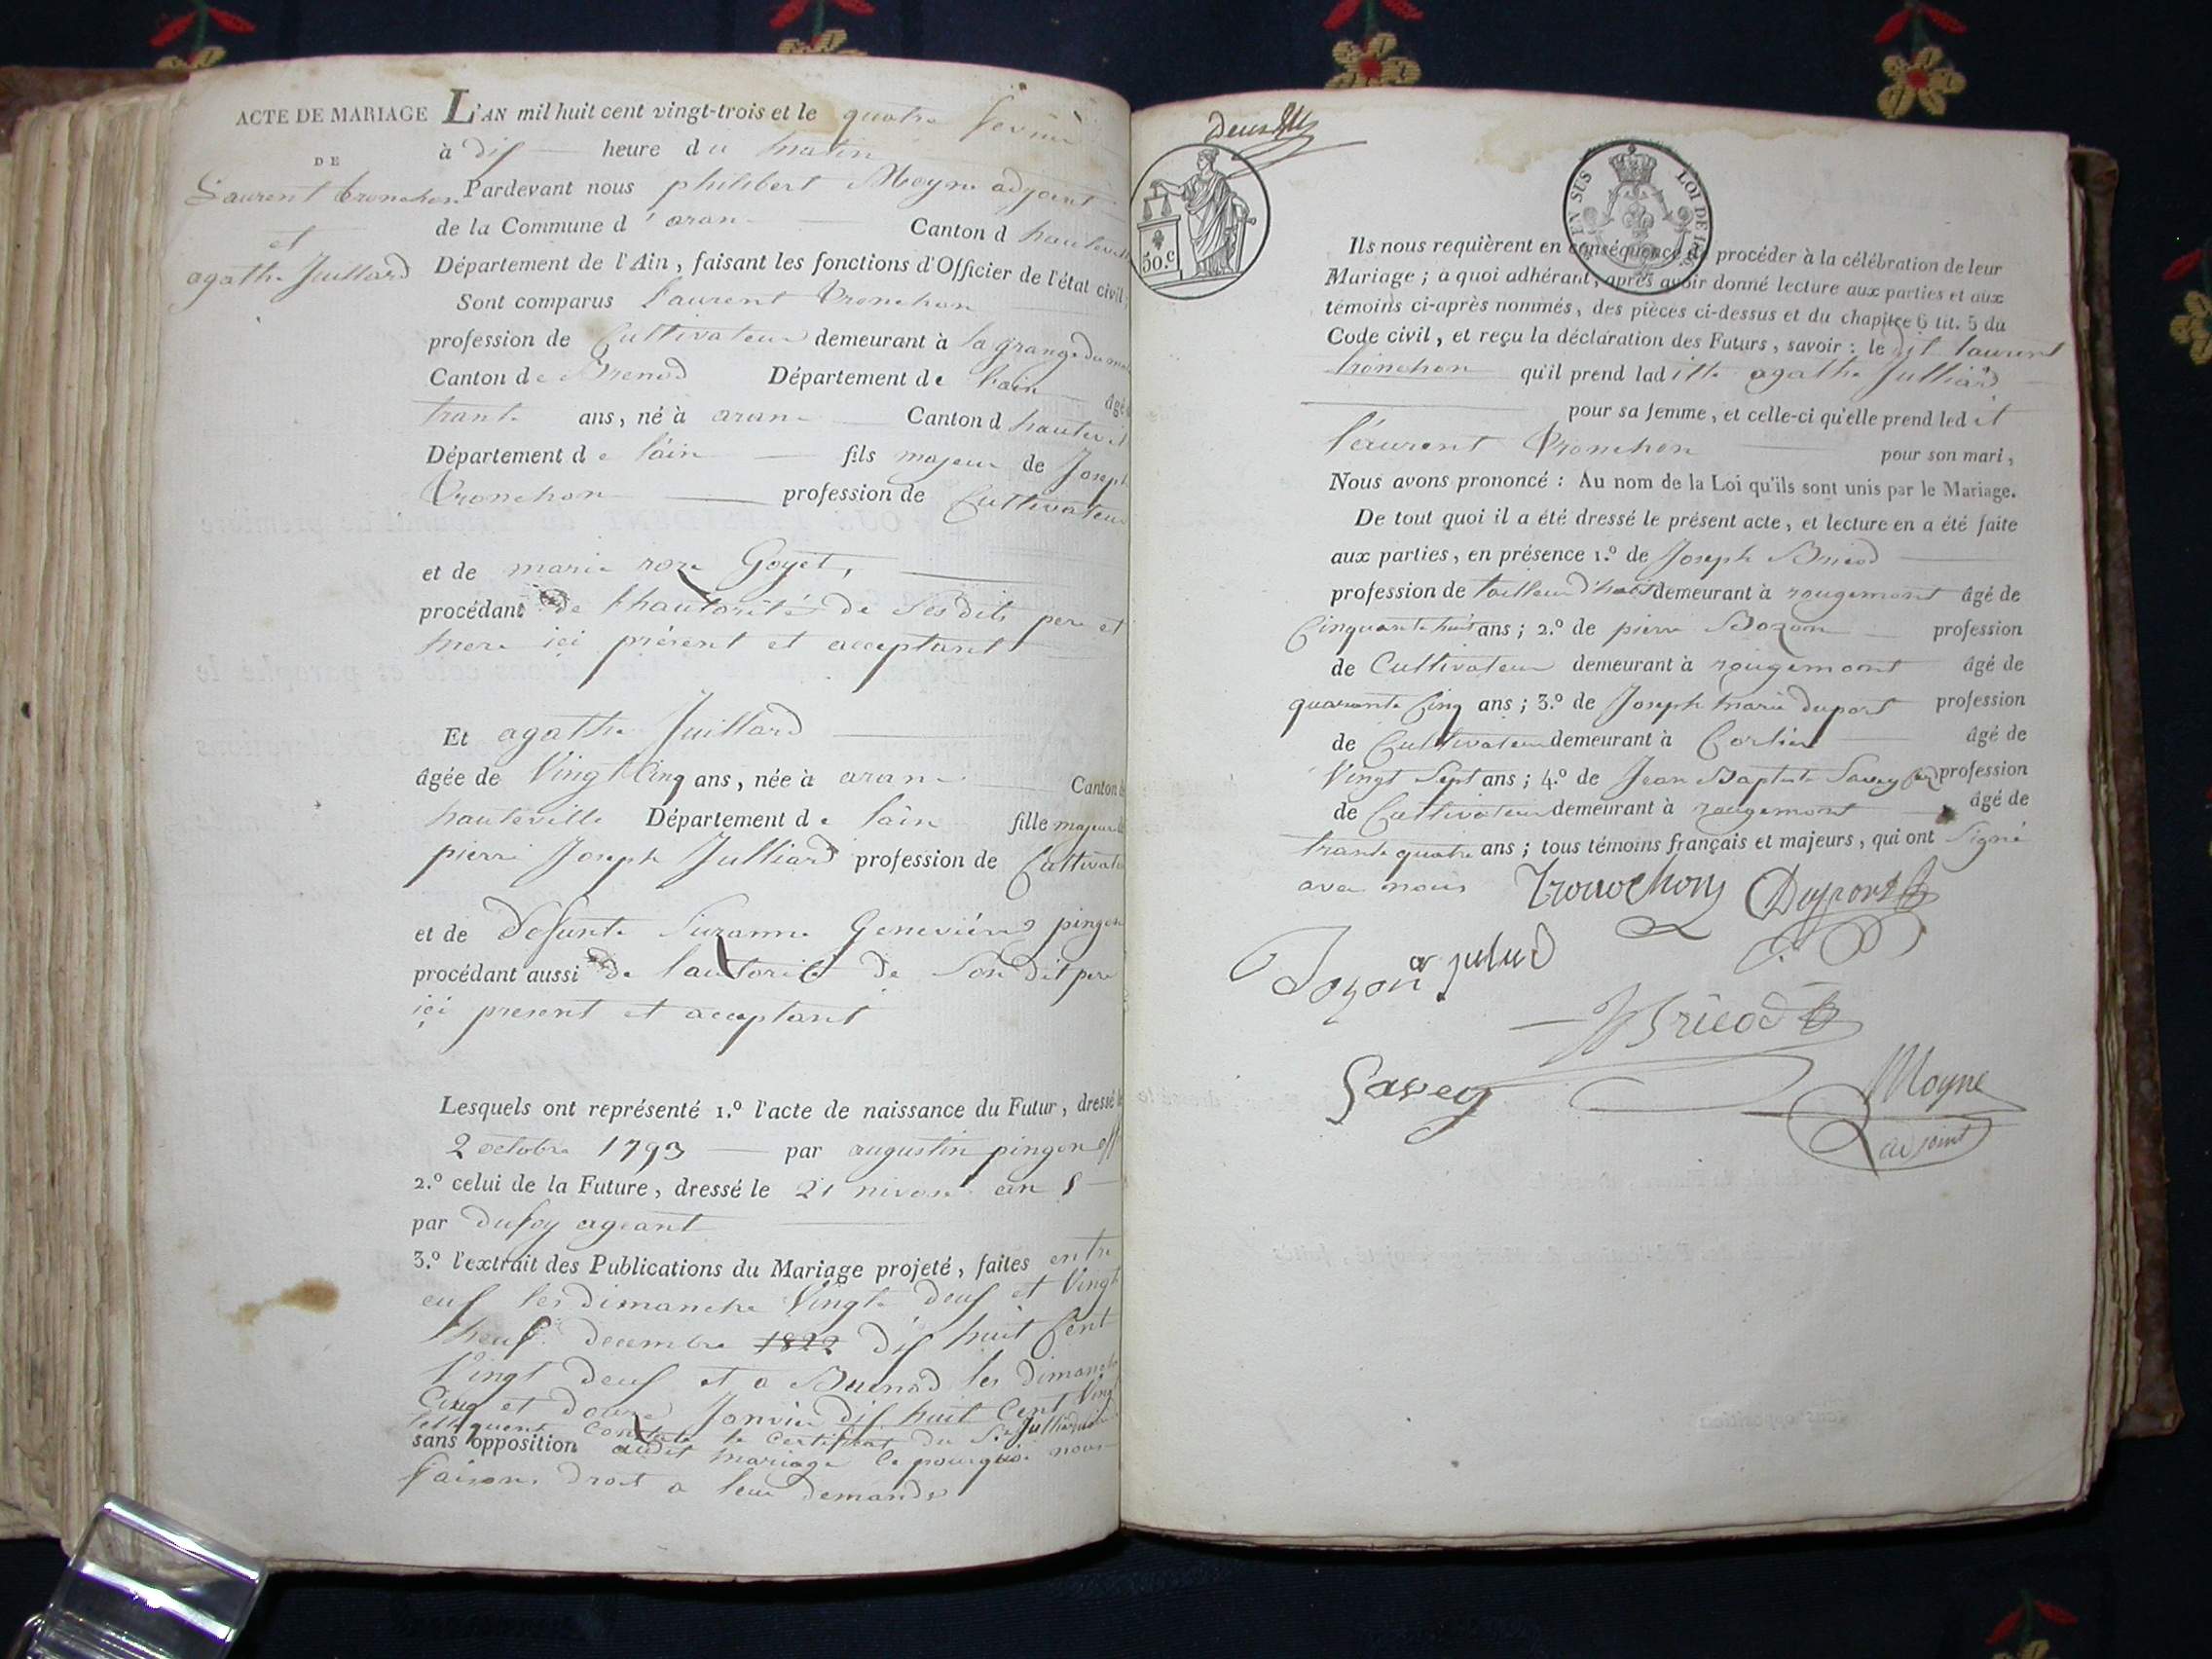 ACTE DE MARIAGE
DE
Laurent tronchon
et
agathe Juillard
L'AN mil huit cent vingt-trois et le quatre fevrier
à dix heure du matin
Pardevant nous philibert Moyne adjoint
de la Commune d'aran Canton d hauteville
Département de l'Ain, faisant les fonctions d'Officier de l'état civil,
Sont comparus Laurent tronchon
profession de Cultivateur demeurant à la grange du
Canton de Brenod Département de l'ain âgé
trante ans, né à aran Canton d hautevil
Département de l'ain fils majeur de Joseph
tronchon profession de Cultivateur
et de marie roze Goyet,
procédant de lhautorité de ses dits pere et
mere ici présent et acceptant
Et agathe Juillard
âgée de Vingt Cinq ans, née à aran Canton
hauteville Département de lain fille majeure
pierre Joseph Julliard profession de Cultivate
et de defunte Suzanne Genevieve pingon
procédant aussi de lautorité de Son dit pere
ici present et acceptant
Lesquels ont représenté 1.º l'acte de naissance du Futur, dressé le
2 octobre 1793 par augustin pingon off
2.º celui de la Future, dressé le 21 nivose an 5
par dufoy ageant
3.º l'extrait des Publications du Mariage projeté, faites entre
eux les dimanche Vingt deux et Vingt
neuf decembre 1822 dix huit Cent
Vingt deux et a Brenod les dimanche
Cinq et douze Janvier dix huit Cent Ving
constate le certificat du Sr Julliard
sans opposition audit mariage Ce pourquoi nous
faisons droit a leur demande
deux
50.c
EN SUS LOI DE
Ils nous requièrent en conséquence de procéder à la célébration de leur
Mariage; à quoi adhérant, après avoir donné lecture aux parties et aux
témoins ci-après nommés, des pièces ci-dessus et du chapitre 6 tit. 5 du
Code civil, et reçu la déclaration des Futurs, savoir: le dit laurent
tronchon qu'il prend laditte agathe Julliard
pour sa femme, et celle-ci qu'elle prend ledit
laurent tronchon pour son mari,
Nous avons prononcé: Au nom de la Loi qu'ils sont unis par le Mariage.
De tout quoi il a été dressé le présent acte, et lecture en a été faite
aux parties, en présence 1.º de Joseph Bricod
profession de tailleur d'habit demeurant à rougemont âgé de
Cinquante huit ans; 2.º de pierre Bozon profession
de Cultivateur demeurant à rougemont âgé de
quarante Cinq ans; 3.º de Joseph marie duport profession
de Cultivateur demeurant à Corlier âgé de
Vingt Sept ans; 4.º de Jean Baptiste Savey profession
de Cultivateur demeurant à rougemont âgé de
trante quatre ans; tous témoins français et majeurs, qui ont Signé
avec nous Tronchon Duport
Bozon a juliard
Bricod
Savey Moyne
adjoint